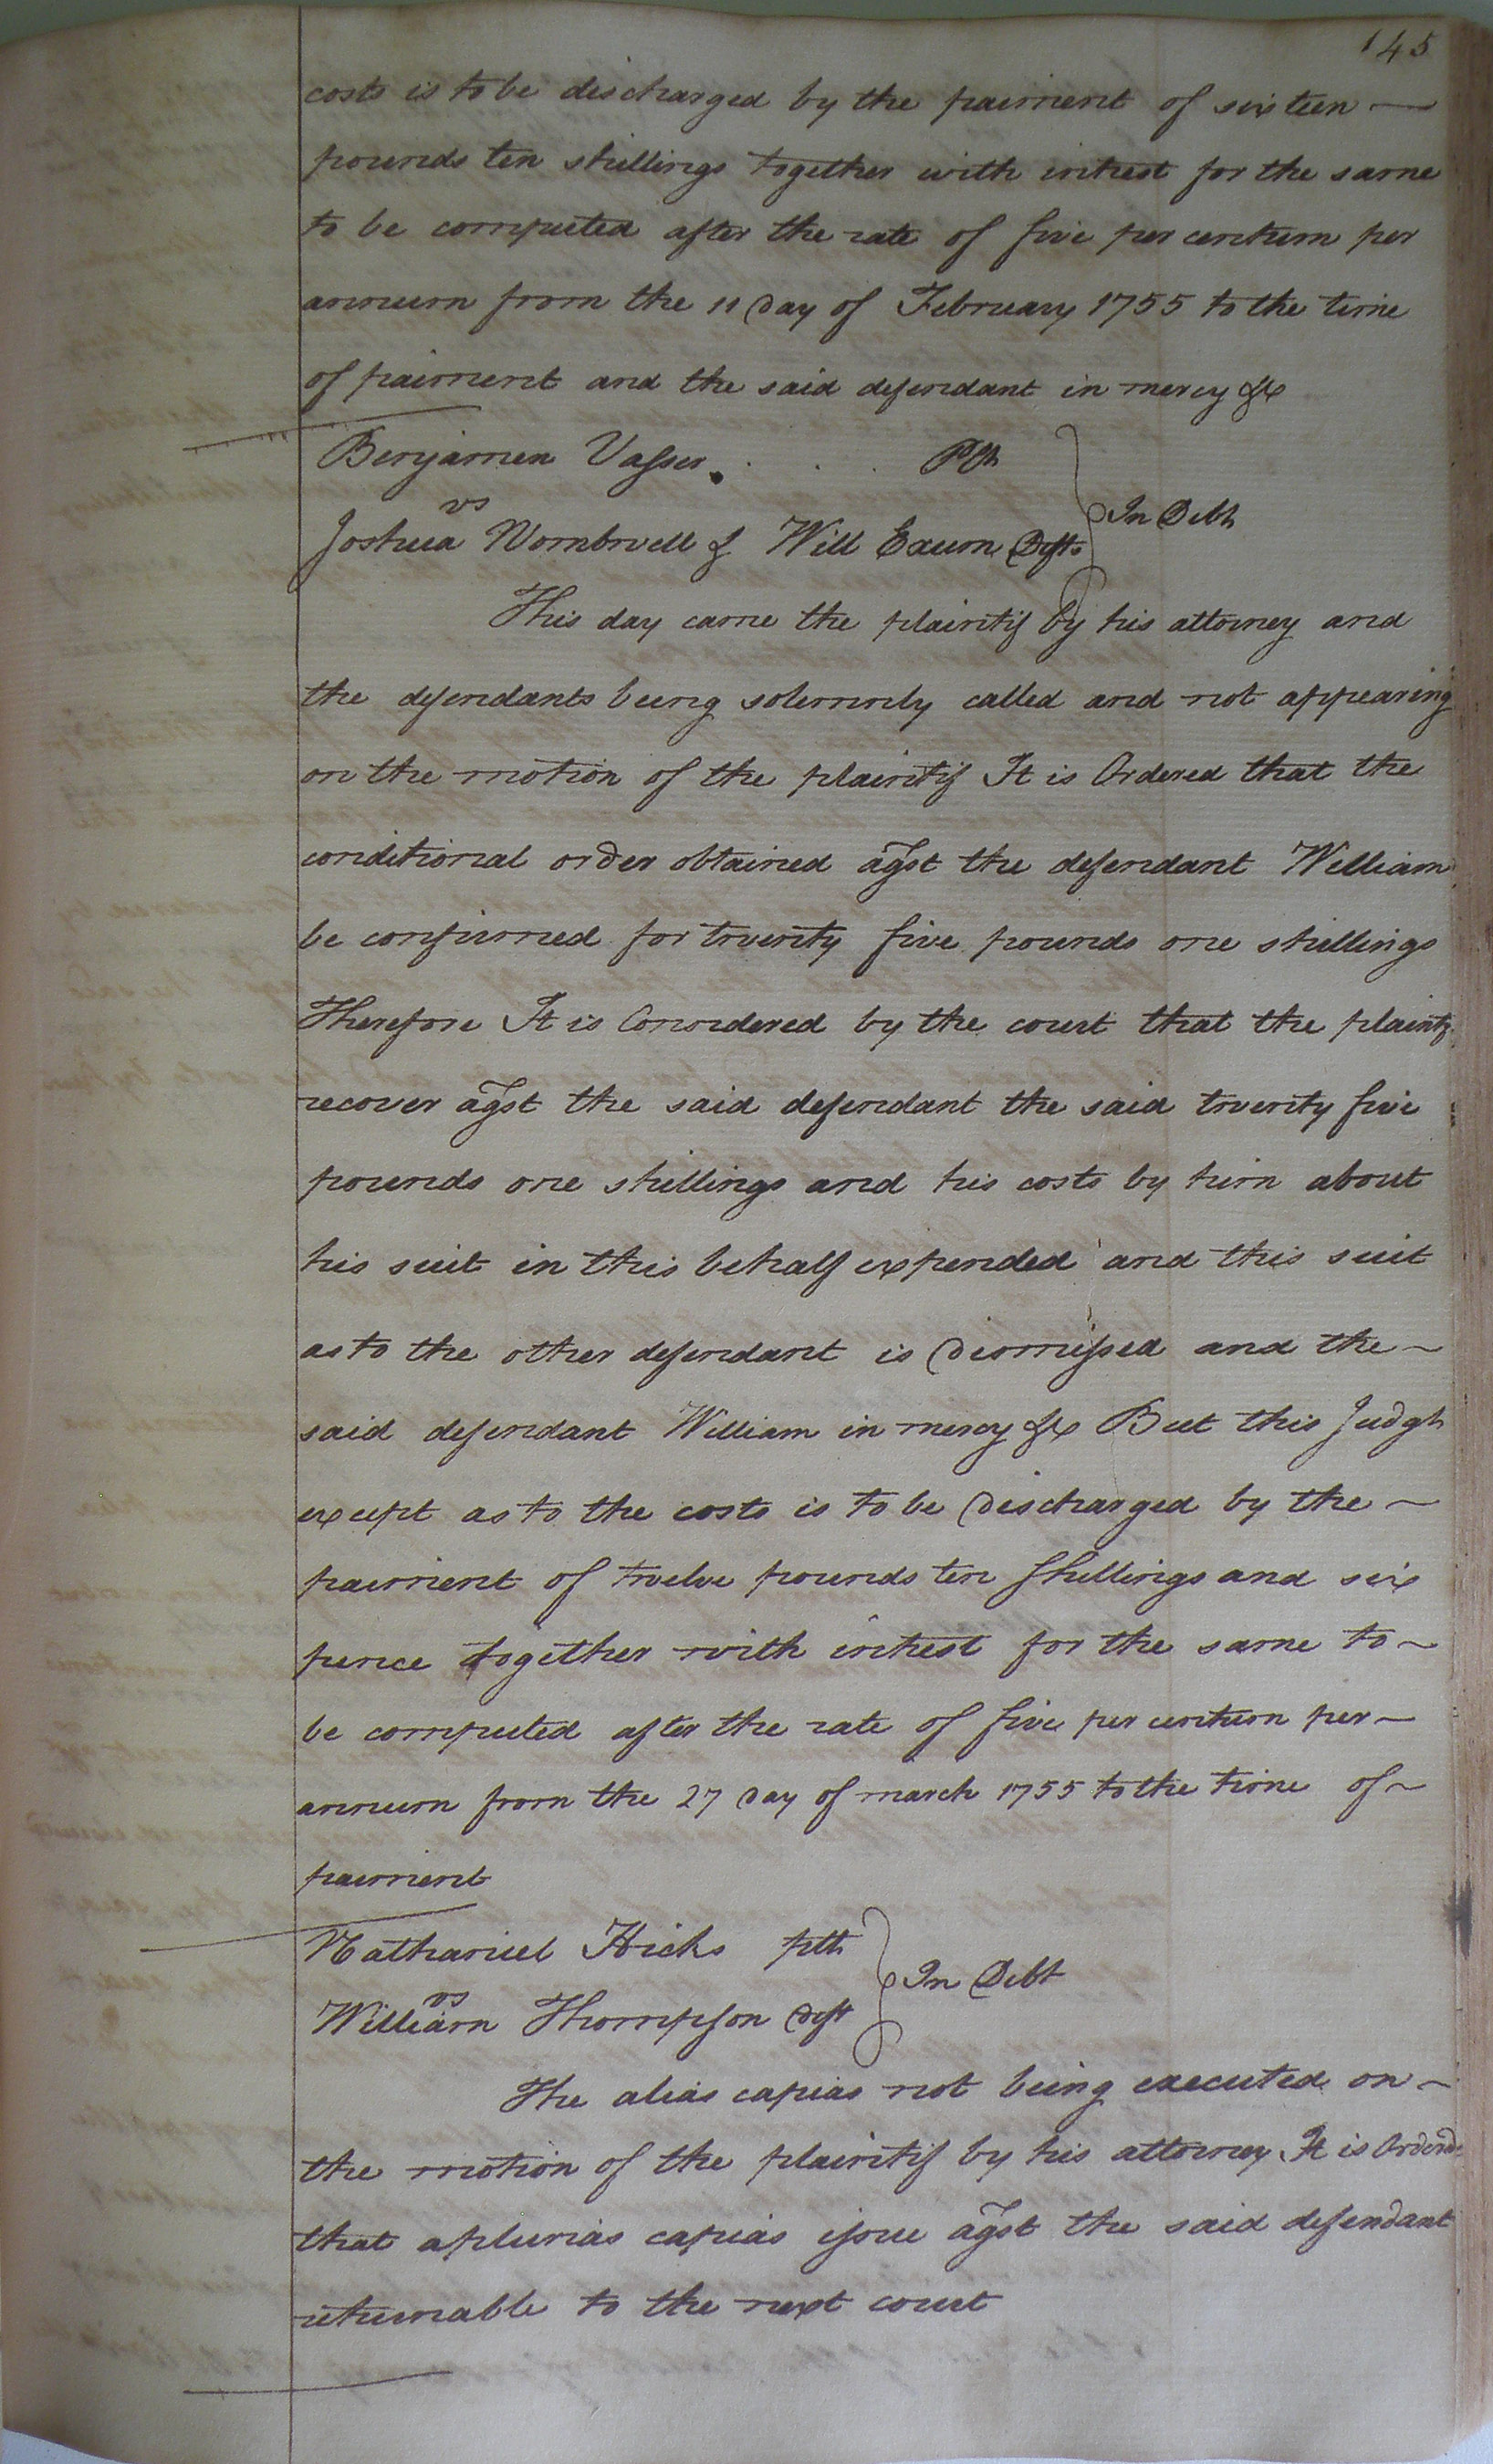 145
costs is to be discharged by the paiment of sixteen —
pounds ten shillings together with intrest for the same
to be computed after the rate of five per centum per
annum from the 11 day of February 1755 to the time
of paiment and the said defendant in mercy &c
Benjamen Vasser . . . Plt
vs
In Debt
Joshua Wombwell & Will Exum Defts
This day came the plaintif by his attorney and
the defendants being solemnly called and not appearing
on the motion of the plaintif It is Ordered that the
conditional order obtained agst the defendant William
be confirmed for twenty five pounds one shillings
Therefore It is Considered by the court that the plaintf
recover agst the said defendant the said twenty five
pounds one shillings and his costs by him about
his suit in this behalf expended and this suit
as to the other defendant is Dismissed and the ~
said defendant William in mercy &c But this Judgt
except as to the costs is to be Discharged by the ~
paiment of twelve pounds ten shillings and six
pence together with intrest for the same to ~
be computed after the rate of five per centum per ~
annum from the 27 day of march 1755 to the time of ~
paiment
Nathaniel Hicks plt
vs
In Debt
William Thompson Deft
The alias capias not being executed on ~
the motion of the plaintif by his attorney It is Ordered
that a plurias capias issue agst the said defendant
returnable to the next court